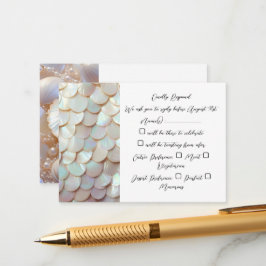 Kindly Respond
We ask you to reply before August 31st
Name(s)
will be there to celebrate
will be toasting from afar
Entree Preference: Meat
Vegetarian
Dessert Preference: Parfait
Macarons